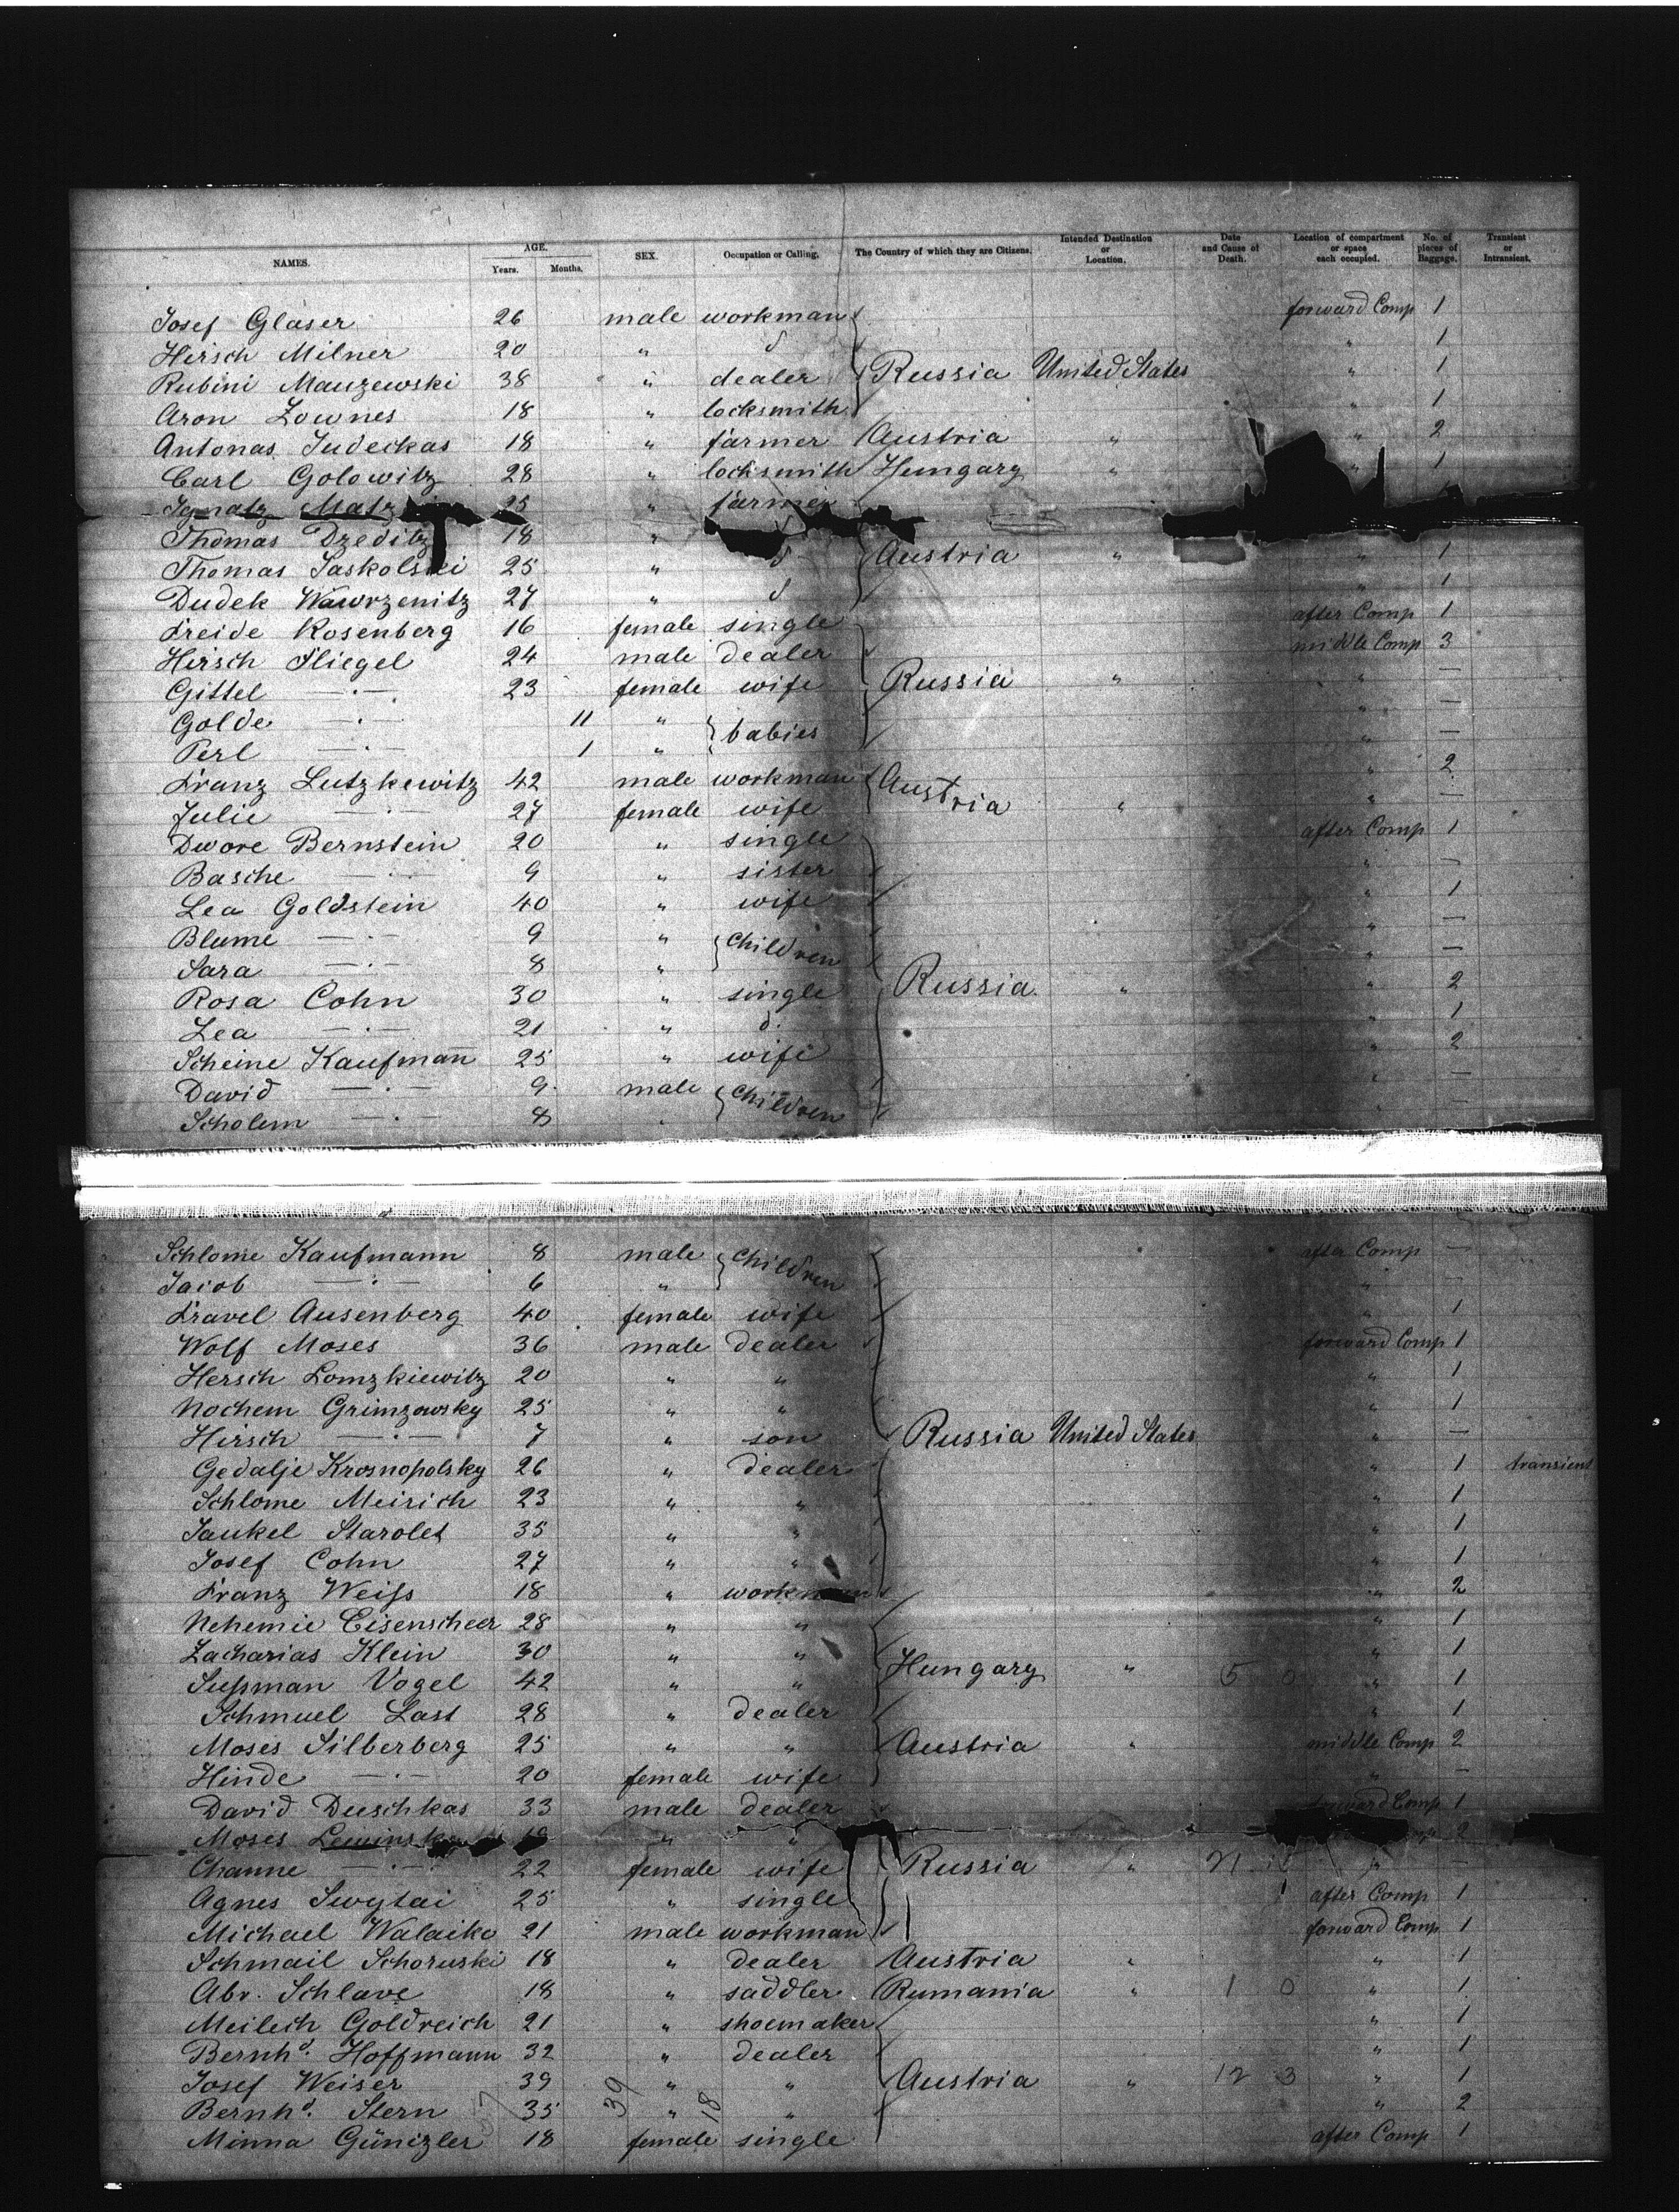 NAMES. AGE. Years. Months. SEX. Occupation or Calling. The Country of which they are Citizens. Intended Destination or Location. Date and Cause of Death. Location of compartment or space each occupied. No. of pieces of Baggage. Transient or Intransient.
Josef Glaser 26 male workman forward Comp 1
Hirsch Milner 20 " d " 1
Rubini Mauzewski 38 " dealer Russia United States " 1
Aron Zownes 18 " locksmith " 1
Antonas Judeckas 18 " farmer Austria " " 2
Carl Golowitz 28 " locksmith Hungary " " 1
Ignatz Matz 25 " farmer
Thomas Dzeditz 18 " d
Thomas Saskolski 25 " d Austria " " 1
Dudek Wawrzenitz 27 " d " 1
Freide Rosenberg 16 female single after Comp 1
Hirsch Fliegel 24 male dealer middle Comp 3
Gittel —·— 23 female wife Russia " " —
Golde —·— 11 " babies " —
Perl —·— 1 " " —
Franz Lutzkewitz 42 male workman Austria " 2
Julie —·— 27 female wife " " —
Dwore Bernstein 20 " single after Comp 1
Basche —·— 9 " sister " —
Lea Goldstein 40 " wife " 1
Blume —·— 9 " children " —
Sara —·— 8 " " —
Rosa Cohn 30 " single Russia " " 2
Lea —·— 21 " d. " 1
Scheine Kaufmann 25 " wife " 2
David —·— 9 male children " —
Scholem —·— 8 " " —
Schlome Kaufmann 8 male children after Comp —
Jacob —·— 6 " " —
Fravel Ausenberg 40 female wife " 1
Wolf Moses 36 male dealer forward Comp 1
Hersch Lomzkiewitz 20 " " " 1
Nochem Grimzowsky 25 " " " 1
Hirsch —·— 7 " son Russia United States " —
Gedalje Krosnopolsky 26 " dealer " 1 transient
Schlome Meirich 23 " " " 1
Jankel Starolet 35 " " " 1
Josef Cohn 27 " " " 1
Franz Weiss 18 " workman " 2
Nehemie Eisenscheer 28 " " " 1
Zacharias Klein 30 " " " 1
Sussman Vogel 42 " " Hungary " 5 0 " 1
Schmuel Last 28 " dealer " 1
Moses Silberberg 25 " " Austria " middle Comp 2
Hinde —·— 20 female wife " —
David Duschkas 33 male dealer forward Comp 1
Moses Lewinsk " " 2
Channe —·— 22 female wife Russia " 21 " —
Agnes Swytai 25 " single after Comp 1
Michael Walaike 21 male workman forward Comp 1
Schmail Schoruski 18 " dealer Austria " " 1
Abr. Schlave 18 " saddler Rumania " 1 0 " 1
Meilech Goldreich 21 " shoemaker " 1
Bernhd. Hoffmann 32 " dealer " 1
Josef Weiser 39 " " Austria " 12 3 " 1
Bernhd. Stern 35 39 " 18 " " 2
Minna Günizler 18 female single after Comp 1